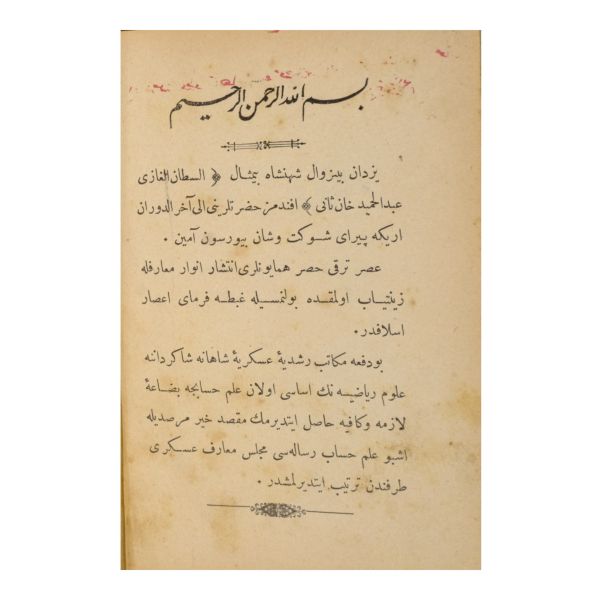 بسم الله الرحمن الرحيم
یزدان بیزوال شهنشاه بیمثال ﴿ السلطان الغازی
عبد الحمید خان ثانی ﴾ افندمز حضرتلرینی الی آخر الدوران
اریکه پیرای شوکت وشان بیورسون آمین ٠
عصر ترقی حصر همایونلری انتشار انوار معارفله
زینتیاب اولمقده بولنمسیله غبطه فرمای اعصار
اسلافدر ٠
بودفعه مکاتب رشدیۀ عسکریۀ شاهانه شاکرداننه
علوم ریاضیه نك اساسی اولان علم حسابجه بضاعۀ
لازمه وکافیه حاصل ایتدیرمك مقصد خیر مرصدیله
اشبو علم حساب رساله‌سی مجلس معارف عسکری
طرفندن ترتیب ایتدیرلمشدر ٠